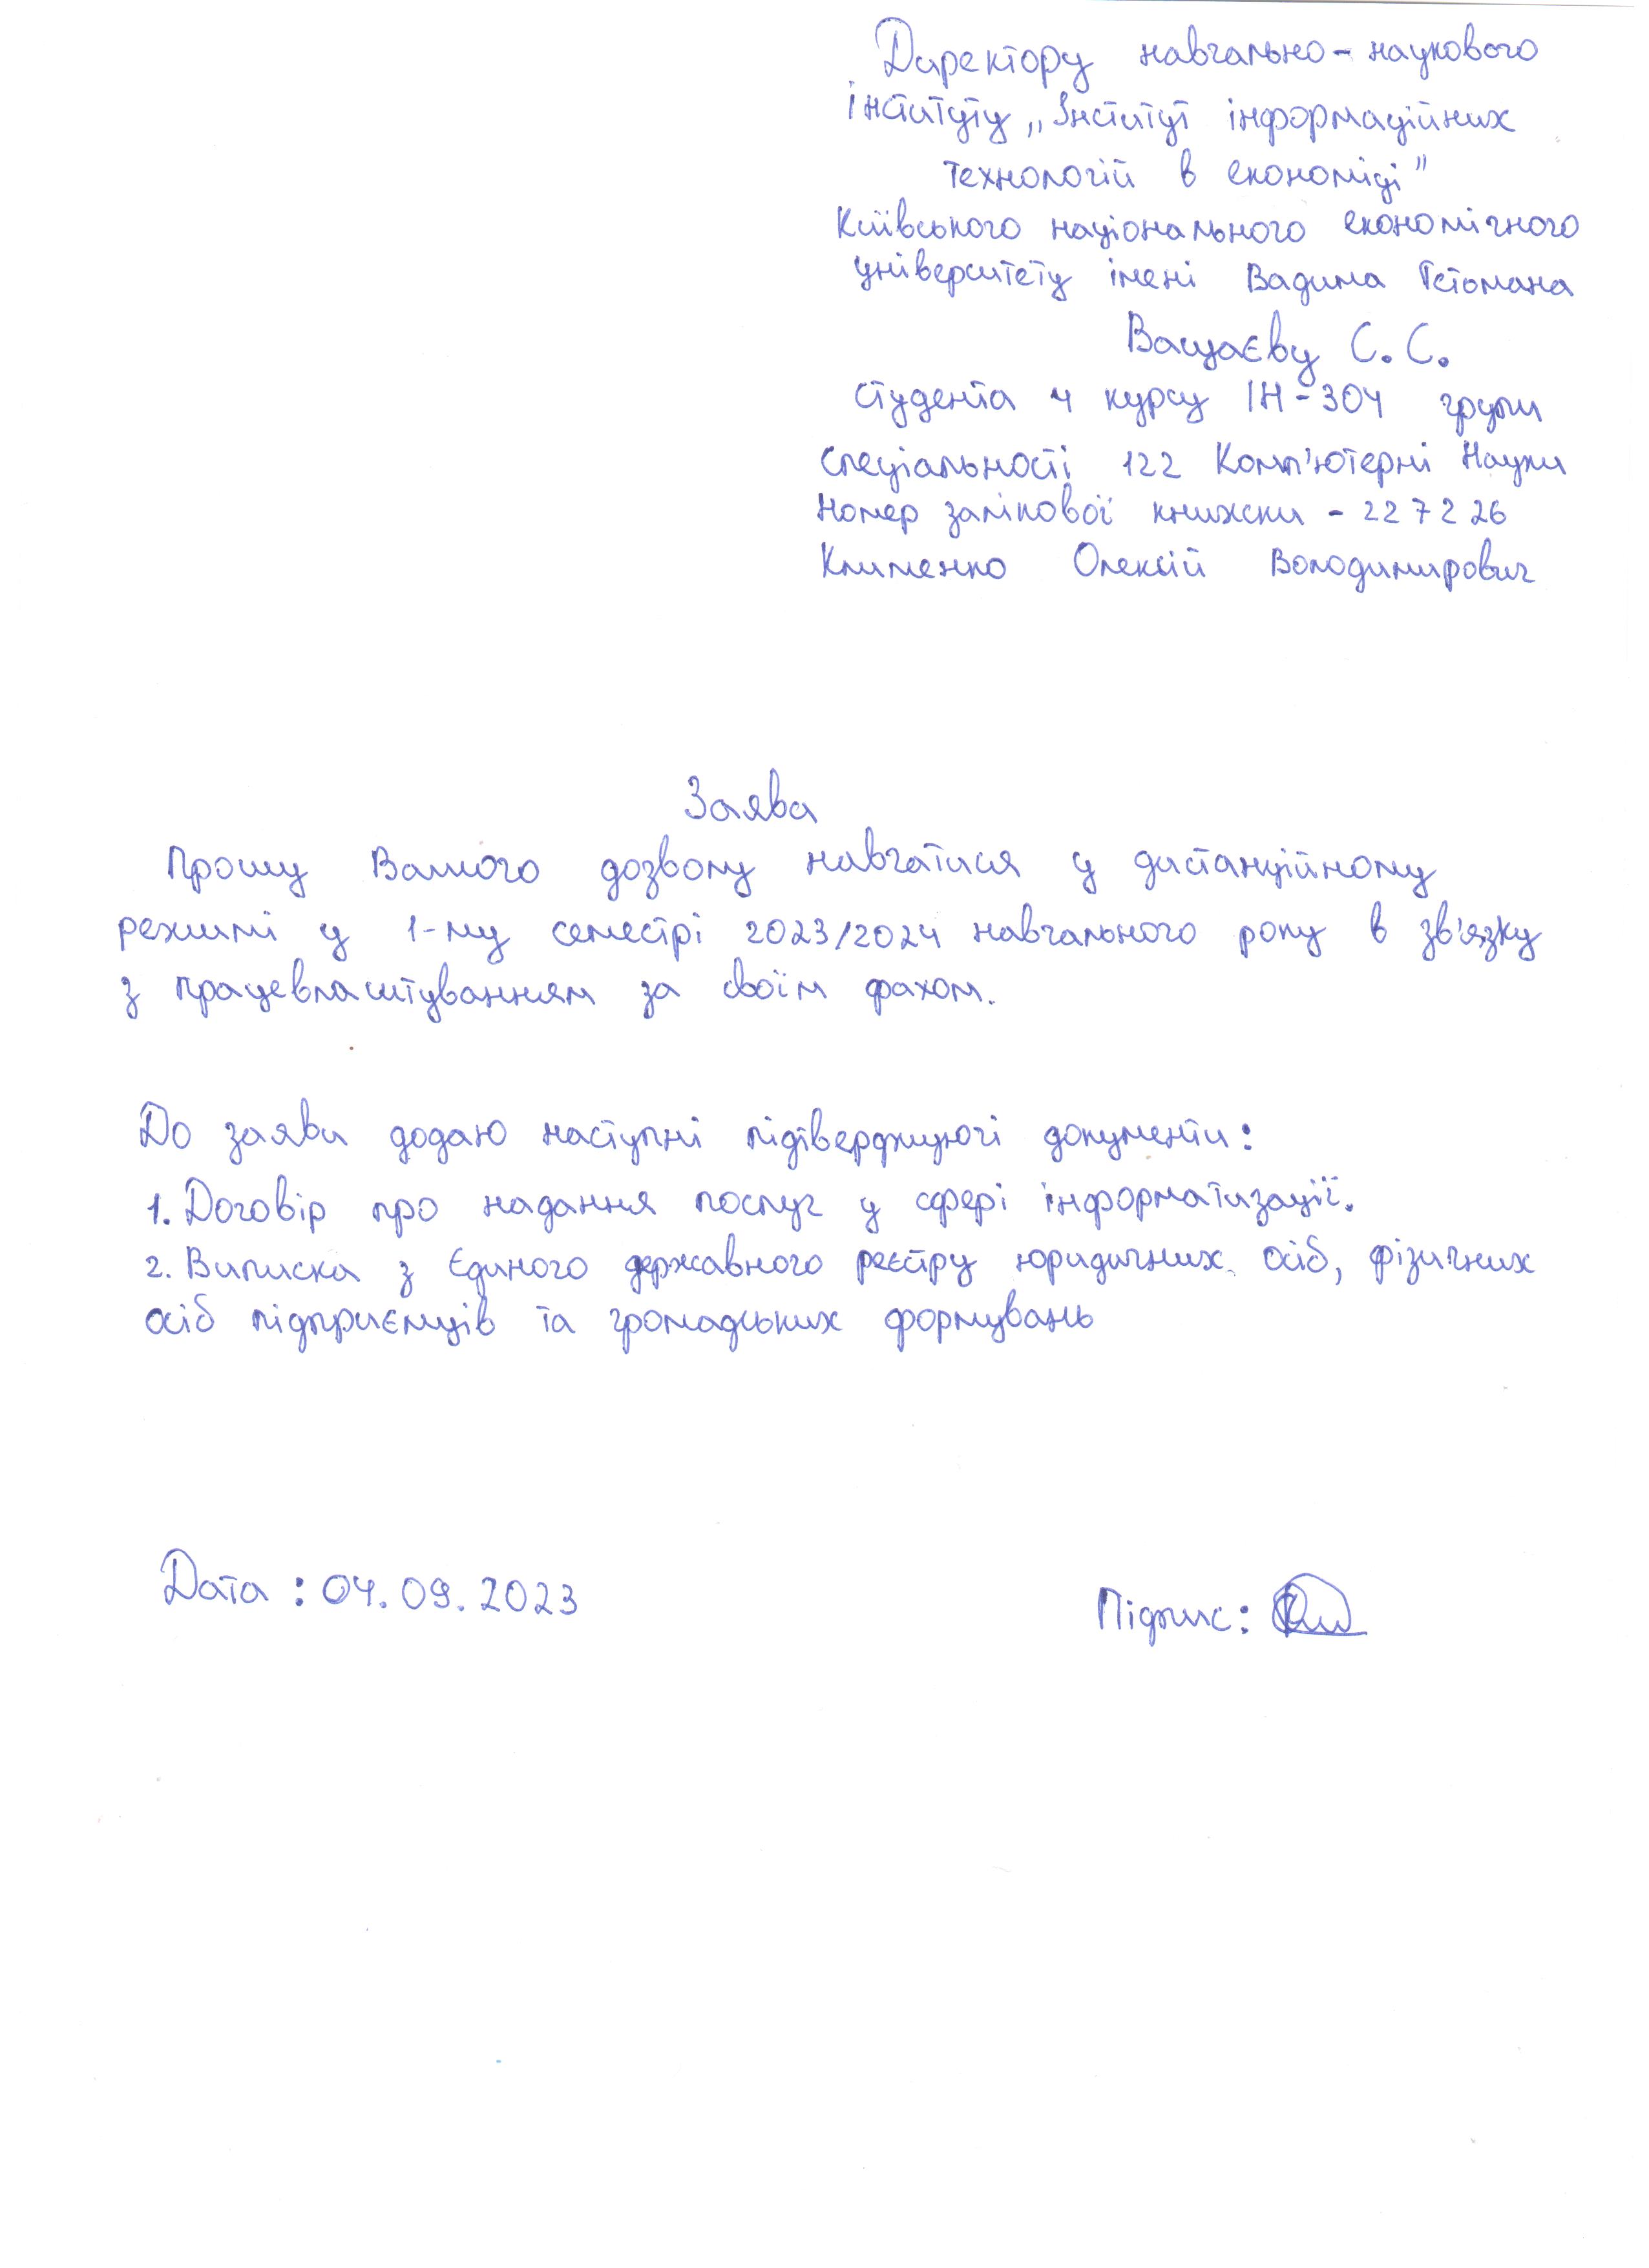 Директору навчально-наукового
інституту „Інститут інформаційних
технологій в економіці"
Київського національного економічного
університету імені Вадима Гетьмана
Ващаєву С. С.
студента 4 курсу ІН-304 групи
спеціальності 122 Комп'ютерні Науки
Номер залікової книжки - 227226
Клименко Олексій Володимирович
Заява
Прошу Вашого дозволу навчатися у дистанційному
режимі у 1-му семестрі 2023/2024 навчального року в зв'язку
з працевлаштуванням за своїм фахом.
До заяви додаю наступні підтверджуючі документи:
1. Договір про надання послуг у сфері інформатизації.
2. Виписка з Єдиного державного реєстру юридичних осіб, фізичних
осіб підприємців та громадських формувань
Дата : 04.09.2023
Підпис: